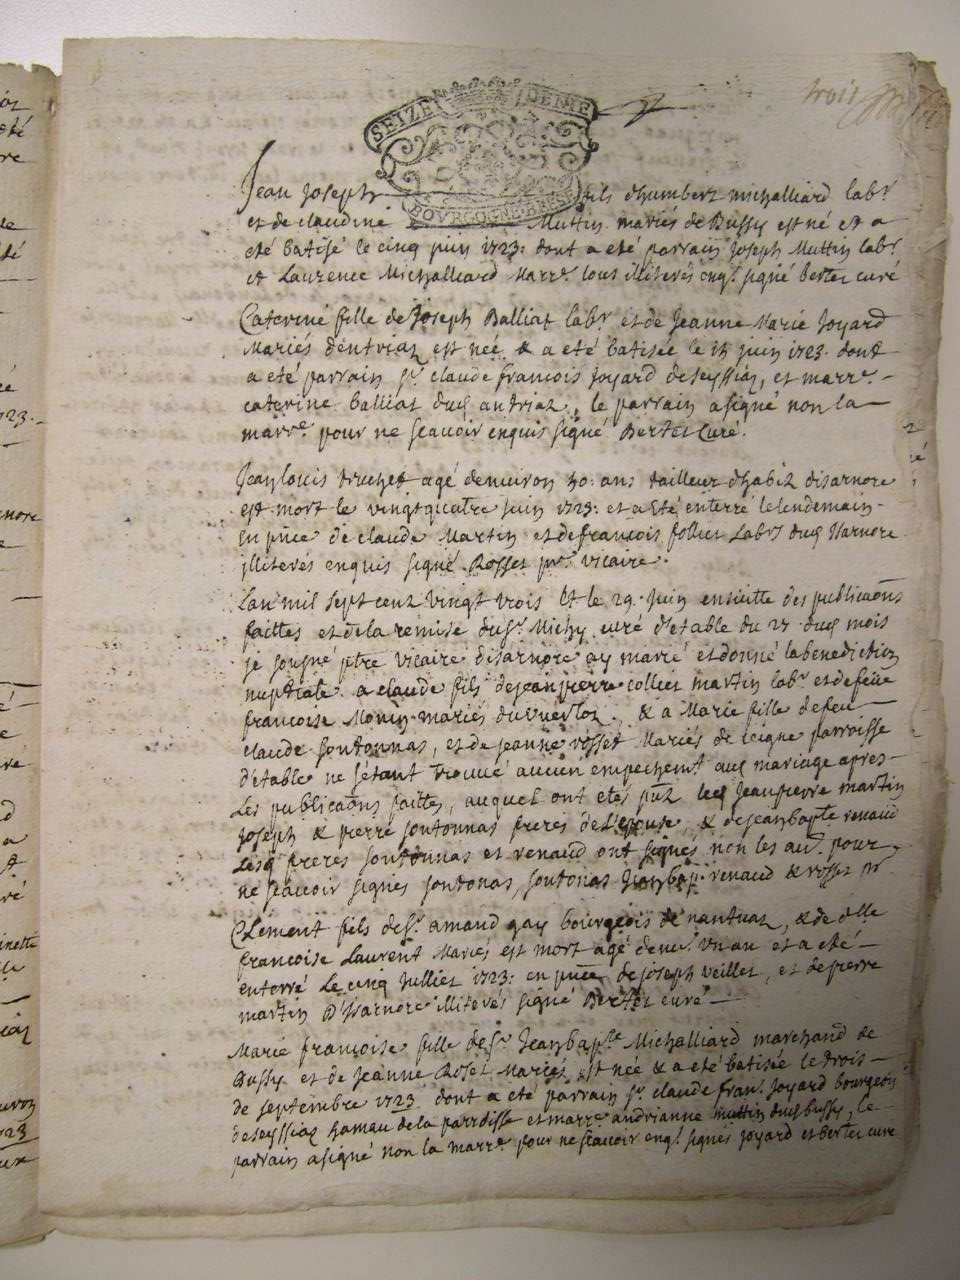 trois
SEIZE DENIE
BOURGOGNE BRESSE
Jean Joseph fils d'humbert michalliard labr
et de claudine Muttin mariés de Bussy est né et a
eté batisé le cinq juin 1723: dont a eté parrain Joseph Muttin labr
et Laurence Michalliard Marre tous illiterés enqs signé bertet curé
Caterine fille de Joseph Balliat labr et de Jeanne Marie Joyard
Mariés d'entriaz est née & a eté batisée le juin 1723. dont
a eté parrain sr claude françois Joyard de seyssiaz, et marre
caterine balliat dud andriaz, le parrain a signé non la
marre pour ne scavoir enquis signé Bertet Curé.
Jean louis truchet agé d'environ 30: ans tailleur d'habit disarnore
est mort le vingtquatre juin 1723: et a eté enterré le lendemain
en pnce de claude Martin et de francois follies Labrs dud Isarnore
illiterés enquis signé Rosset ptre vicaire.
L'an mil sept cent vingt trois Et le 29. juin ensuitte des publicaons
faittes et de la remise du sr Michy curé d'etable du 27 dud mois
je sousné ptre vicaire disarnore ay marié et donné la benediction
nuptiale a claude fils de jean pierre collier martin labr et de feüe
francoise Monin mariés du & a Marie fille de feu
claude sontonnas, et de jeanne rosset Mariés de ceigne parroisse
d'etable ne s'etant trouvé aucun empechemt aud mariage apres
Les publicaons faittes, auquel ont etes pnts led Jeanpierre martin
joseph & pierre sontonnas freres de L'epouse, & de jeanbapte renaud
Lesq freres sontonnas et renaud ont signés non les aus pour
ne scavoir signés sontonas, sontonas jeanbap renaud & rosset ptr
Clement fils de sr amand gay bourgeois de nantuaz, & de dlle
francoise Laurent Mariés est mort agé d'envs un an et a eté
enterré Le cinq Julliet 1723: en pnce de joseph veillet, et de pierre
martin D'Isarnore illiterés signé Bertet curé
Marie françoise fille de sr Jeanbapte Michalliard marchand de
Bussy et de Jeanne Roset Mariés, est née & a eté batisée le trois
de septembre 1723 dont a eté parrain sr claude frans Joyard bourgeois
de seyssiaz hamau de la parroisse et marre andrianne muttin dud bussy, le
parrain a signé non la marre pour ne scavoir enqs signés joyard et bertet curé